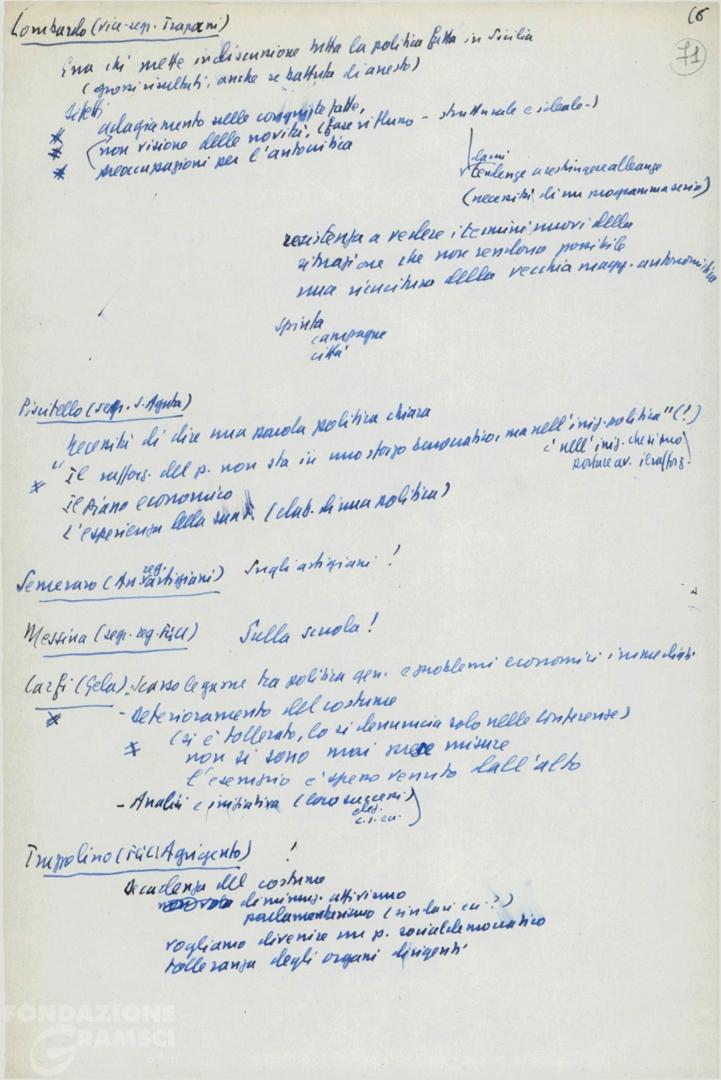 16
71
Lombardo (vice-segr. Trapani)
Era chi mette in discussione tutta la politica fatta in Sicilia
(grossi risultati, anche se battuta di arresto)
Difetti
* adagiamento nelle conquiste fatte,
* non visione delle novità, (fase riflusso - strutturale e ideale-)
* preoccupazioni per l'autocritica
tendenze a restringere alleanze
(necessità di un programma serio)
resistenza a vedere i termini nuovi della
situazione che non rendono possibile
una ricucitura della vecchia magg. autonomista
Spinta
campagne
città
Piscitello (segr. S. Agata)
Necessità di dire una parola politica chiara
* "Il rafforz. del p. non sta in uno sforzo burocratico, ma nell'iniz. politica" (!)
è nell'iniz. che si può
portare av. il rafforz.
Il piano economico
L'esperienza della (elab. di una politica)
Semeraro (An reg. artigiani) Sugli artigiani!
Messina (segr. reg. FGCI) Sulla scuola!
Carfì (Gela) Scarso legame tra politica gen. e problemi economici immediati
* - Deterioramento del costume
(si è tollerato, lo si denuncia solo nelle conferenze)
* non si sono mai prese misure
l'esempio è spesso venuto dall'alto
- Analisi e iniziativa (loro successi)
elez.
c.i. ecc.
(FGCI Agrigento) !
Decadenza del costume
diminuz. attivismo
parlamentarismo (sindaci ecc?)
vogliamo divenire un p. socialdemocratico
tolleranza degli organi dirigenti
FONDAZIONE
GRAMSCI